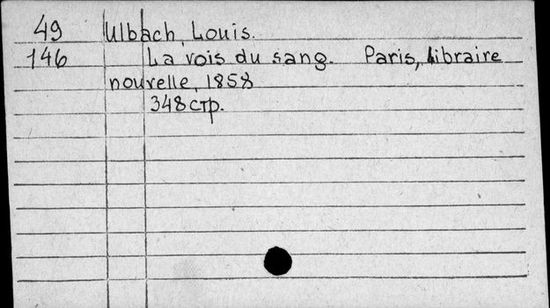 49 Ulbach, Louis.
146 La vois du sang. Paris, Libraire
nouvelle, 1858
348 стр.